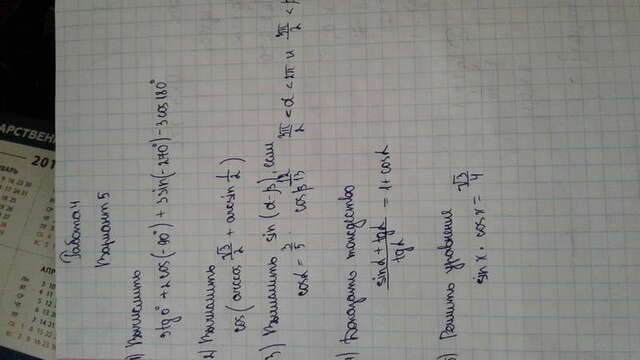 Работа 4
Вариант 5
1) Вычислить
3tg0° + 2cos(-90°) + 3sin(-270°) - 3cos180°
2) Вычислить
cos(arccos √3/2 + arcsin 1/2)
3) Вычислить sin(α-β), если
cosα = 3/5 cosβ 12/13 3π/2 < α < 2π и 3π/2 < β
4) Доказать тождество
sinα + tgα / tgα = 1 + cosα
5) Решить уравнение
sin x · cos x = √3/4